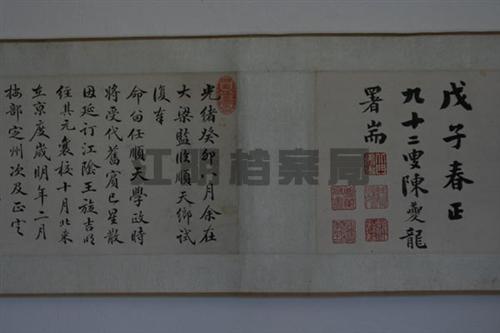 戊子春正
九十二叟陳夔龍
署耑
光緒癸卯八月余在
大梁監臨順天鄉試
復奉
命留任順天學政時
將受代舊賓已星散
因延訂江陰王旋吉明
經其元襄校十月北來
在京度歲明年二月
按部定州次及正定
江阴档案局